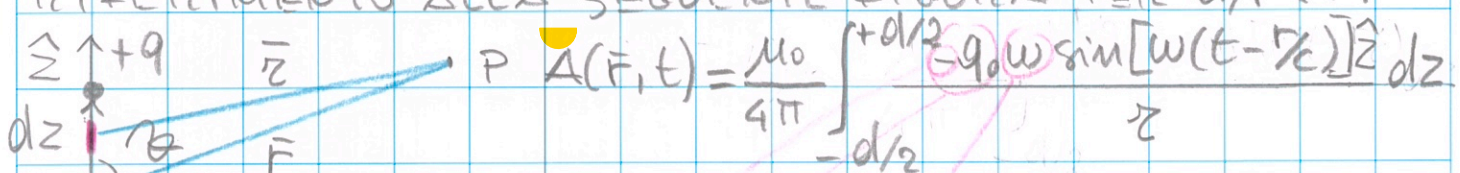 ẑ ↑ +q   r̄   P   A(r̄, t) = μ₀/4π ∫_{-d/2}^{+d/2} -q₀ω sin[ω(t - r/c)] ẑ / r dz
dz   θ   r̄